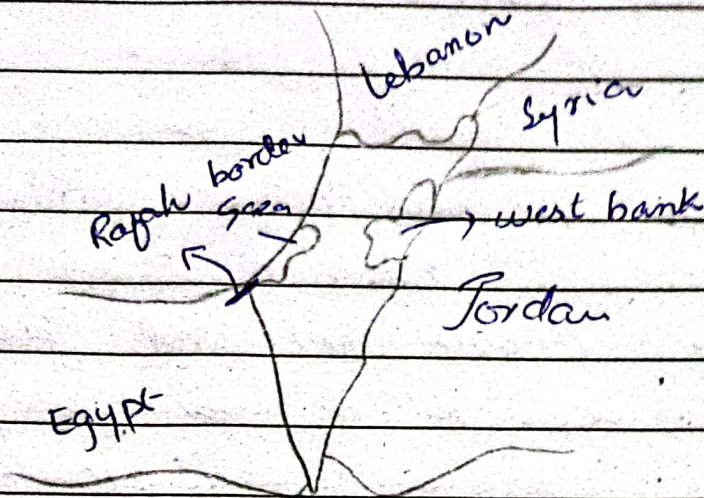 Lebanon
Syria
Rafah border
Gaza
west bank
Jordan
Egypt